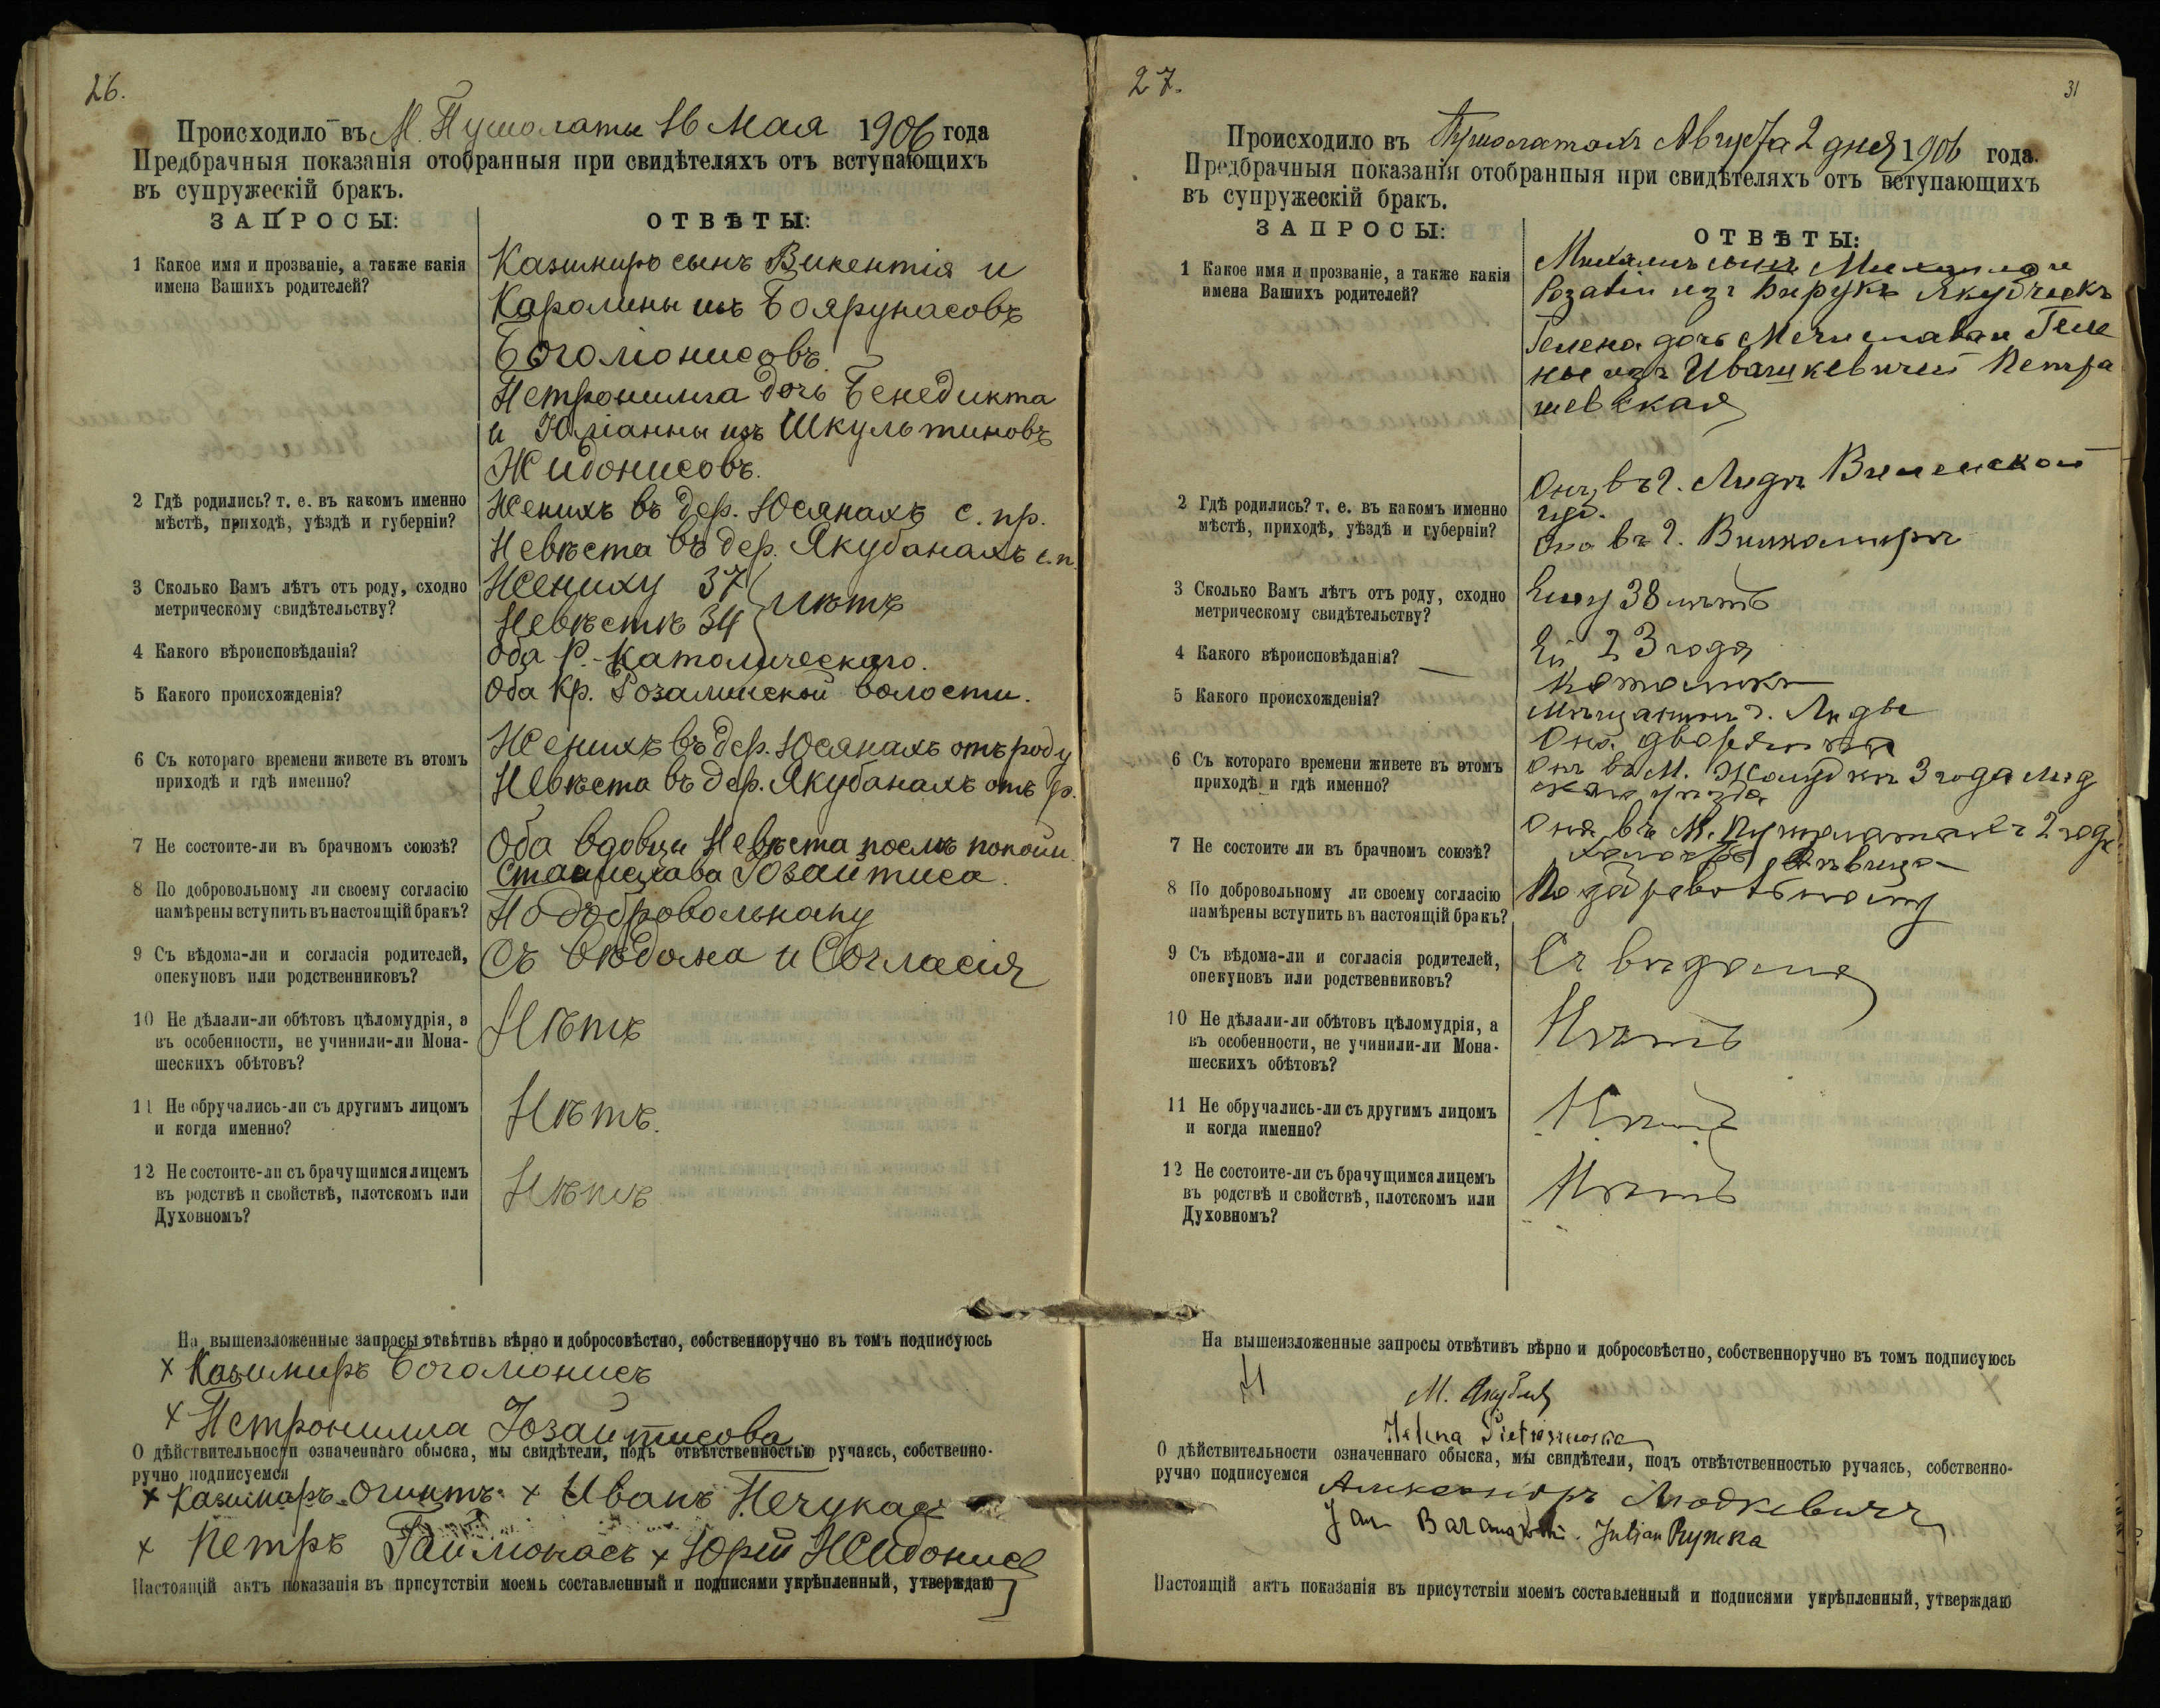 26.
Происходило въ М. Пушолаты 16 Мая 1906 года
Предбрачныя показанія отобранныя при свидѣтеляхъ отъ вступающихъ
въ супружескій бракъ.
ЗАПРОСЫ: ОТВѢТЫ:
1 Какое имя и прозваніе, а также какія
имена Вашихъ родителей?
Казимиръ сынъ Викентія и
Каролины изъ Боярунасовъ
Боголюнисовъ.
Петронилла дочь Бенедикта
и Юліанны изъ Шкультиновъ
Жидонисовъ.
2 Гдѣ родились? т. е. въ какомъ именно
мѣстѣ, приходѣ, уѣздѣ и губерніи?
Женихъ въ дер. Юсянахъ с. пр.
Невѣста въ дер. Якубанахъ с. п.
3 Сколько Вамъ лѣтъ отъ роду, сходно
метрическому свидѣтельству?
Жениху 37
Невѣстѣ 34 лѣтъ
4 Какого вѣроисповѣданія?
Оба Р.-Католическаго.
5 Какого происхожденія?
Оба Кр. Розалинской волости.
6 Съ котораго времени живете въ этомъ
приходѣ и гдѣ именно?
Женихъ въ дер. Юсянахъ отъ роду
Невѣста въ дер. Якубанахъ отъ р.
7 Не состоите-ли въ брачномъ союзѣ?
Оба вдовцы Невѣста послѣ покойн.
Станислава Юзайтиса.
8 По добровольному ли своему согласію
намѣрены вступить въ настоящій бракъ?
По добровольному
9 Съ вѣдома-ли и согласія родителей,
опекуновъ или родственниковъ?
Съ вѣдома и Согласія
10 Не дѣлали-ли обѣтовъ цѣломудрія, а
въ особенности, не учинили-ли Мона-
шескихъ обѣтовъ?
Нѣтъ
11 Не обручались-ли съ другимъ лицомъ
и когда именно?
Нѣтъ.
12 Не состоите-ли съ брачущимся лицемъ
въ родствѣ и свойствѣ, плотскомъ или
Духовномъ?
Нѣтъ
На вышеизложенные запросы отвѣтивъ вѣрно и добросовѣстно, собственноручно въ томъ подписуюсь
х Казимиръ Боголюнисъ
х Петронилла Юзайтисова
О дѣйствительности означеннаго обыска, мы свидѣтели, подъ отвѣтственностью ручаясь, собственно-
ручно подписуемся
х Казимиръ Огинтъ х Иванъ Печукас
х Петръ Гаймонасъ х Юрій Жидонис
Настоящій актъ показанія въ присутствіи моемъ составленный и подписями укрѣпленный, утверждаю
27.
31
Происходило въ Пушолатахъ Августа 2 дня 1906 года.
Предбрачныя показанія отобранныя при свидѣтеляхъ отъ вступающихъ
въ супружескій бракъ.
ЗАПРОСЫ: ОТВѢТЫ:
1 Какое имя и прозваніе, а также какія
имена Вашихъ родителей?
Михаилъ сынъ Михаила и
Розаліи изъ Бирукъ Якубчикъ
Гелена дочь Мечислава и Геле
ны изъ Ивашкевичей Петра
шевская
2 Гдѣ родились? т. е. въ какомъ именно
мѣстѣ, приходѣ, уѣздѣ и губерніи?
Онъ въ г. Лидѣ Виленской
губ.
Она въ г. Вилкомирѣ
3 Сколько Вамъ лѣтъ отъ роду, сходно
метрическому свидѣтельству?
Ему 38 лѣтъ
Ей 23 года
4 Какого вѣроисповѣданія?
Католики
5 Какого происхожденія?
Мѣщанинъ г. Лиды
Она дворянка
6 Съ котораго времени живете въ этомъ
приходѣ и гдѣ именно?
Онъ въ М. Жолудкѣ 3 года Лид
скаго уѣзда
Она въ М. Пушолатахъ 2 года
7 Не состоите ли въ брачномъ союзѣ?
Холостъ, дѣвица
8 По добровольному ли своему согласію
намѣрены вступить въ настоящій бракъ?
По добровольному
9 Съ вѣдома-ли и согласія родителей,
опекуновъ или родственниковъ?
Съ вѣдома
10 Не дѣлали-ли обѣтовъ цѣломудрія, а
въ особенности, не учинили-ли Мона-
шескихъ обѣтовъ?
Нѣтъ
11 Не обручались-ли съ другимъ лицомъ
и когда именно?
Нѣтъ
12 Не состоите-ли съ брачущимся лицемъ
въ родствѣ и свойствѣ, плотскомъ или
Духовномъ?
Нѣтъ
На вышеизложенные запросы отвѣтивъ вѣрно и добросовѣстно, собственноручно въ томъ подписуюсь
М.
Helena Pietraszewska
О дѣйствительности означеннаго обыска, мы свидѣтели, подъ отвѣтственностью ручаясь, собственно-
ручно подписуемся Александръ Людкевичъ
Jan Baranowski. Julian Rymka
Настоящій актъ показанія въ присутствіи моемъ составленный и подписями укрѣпленный, утверждаю